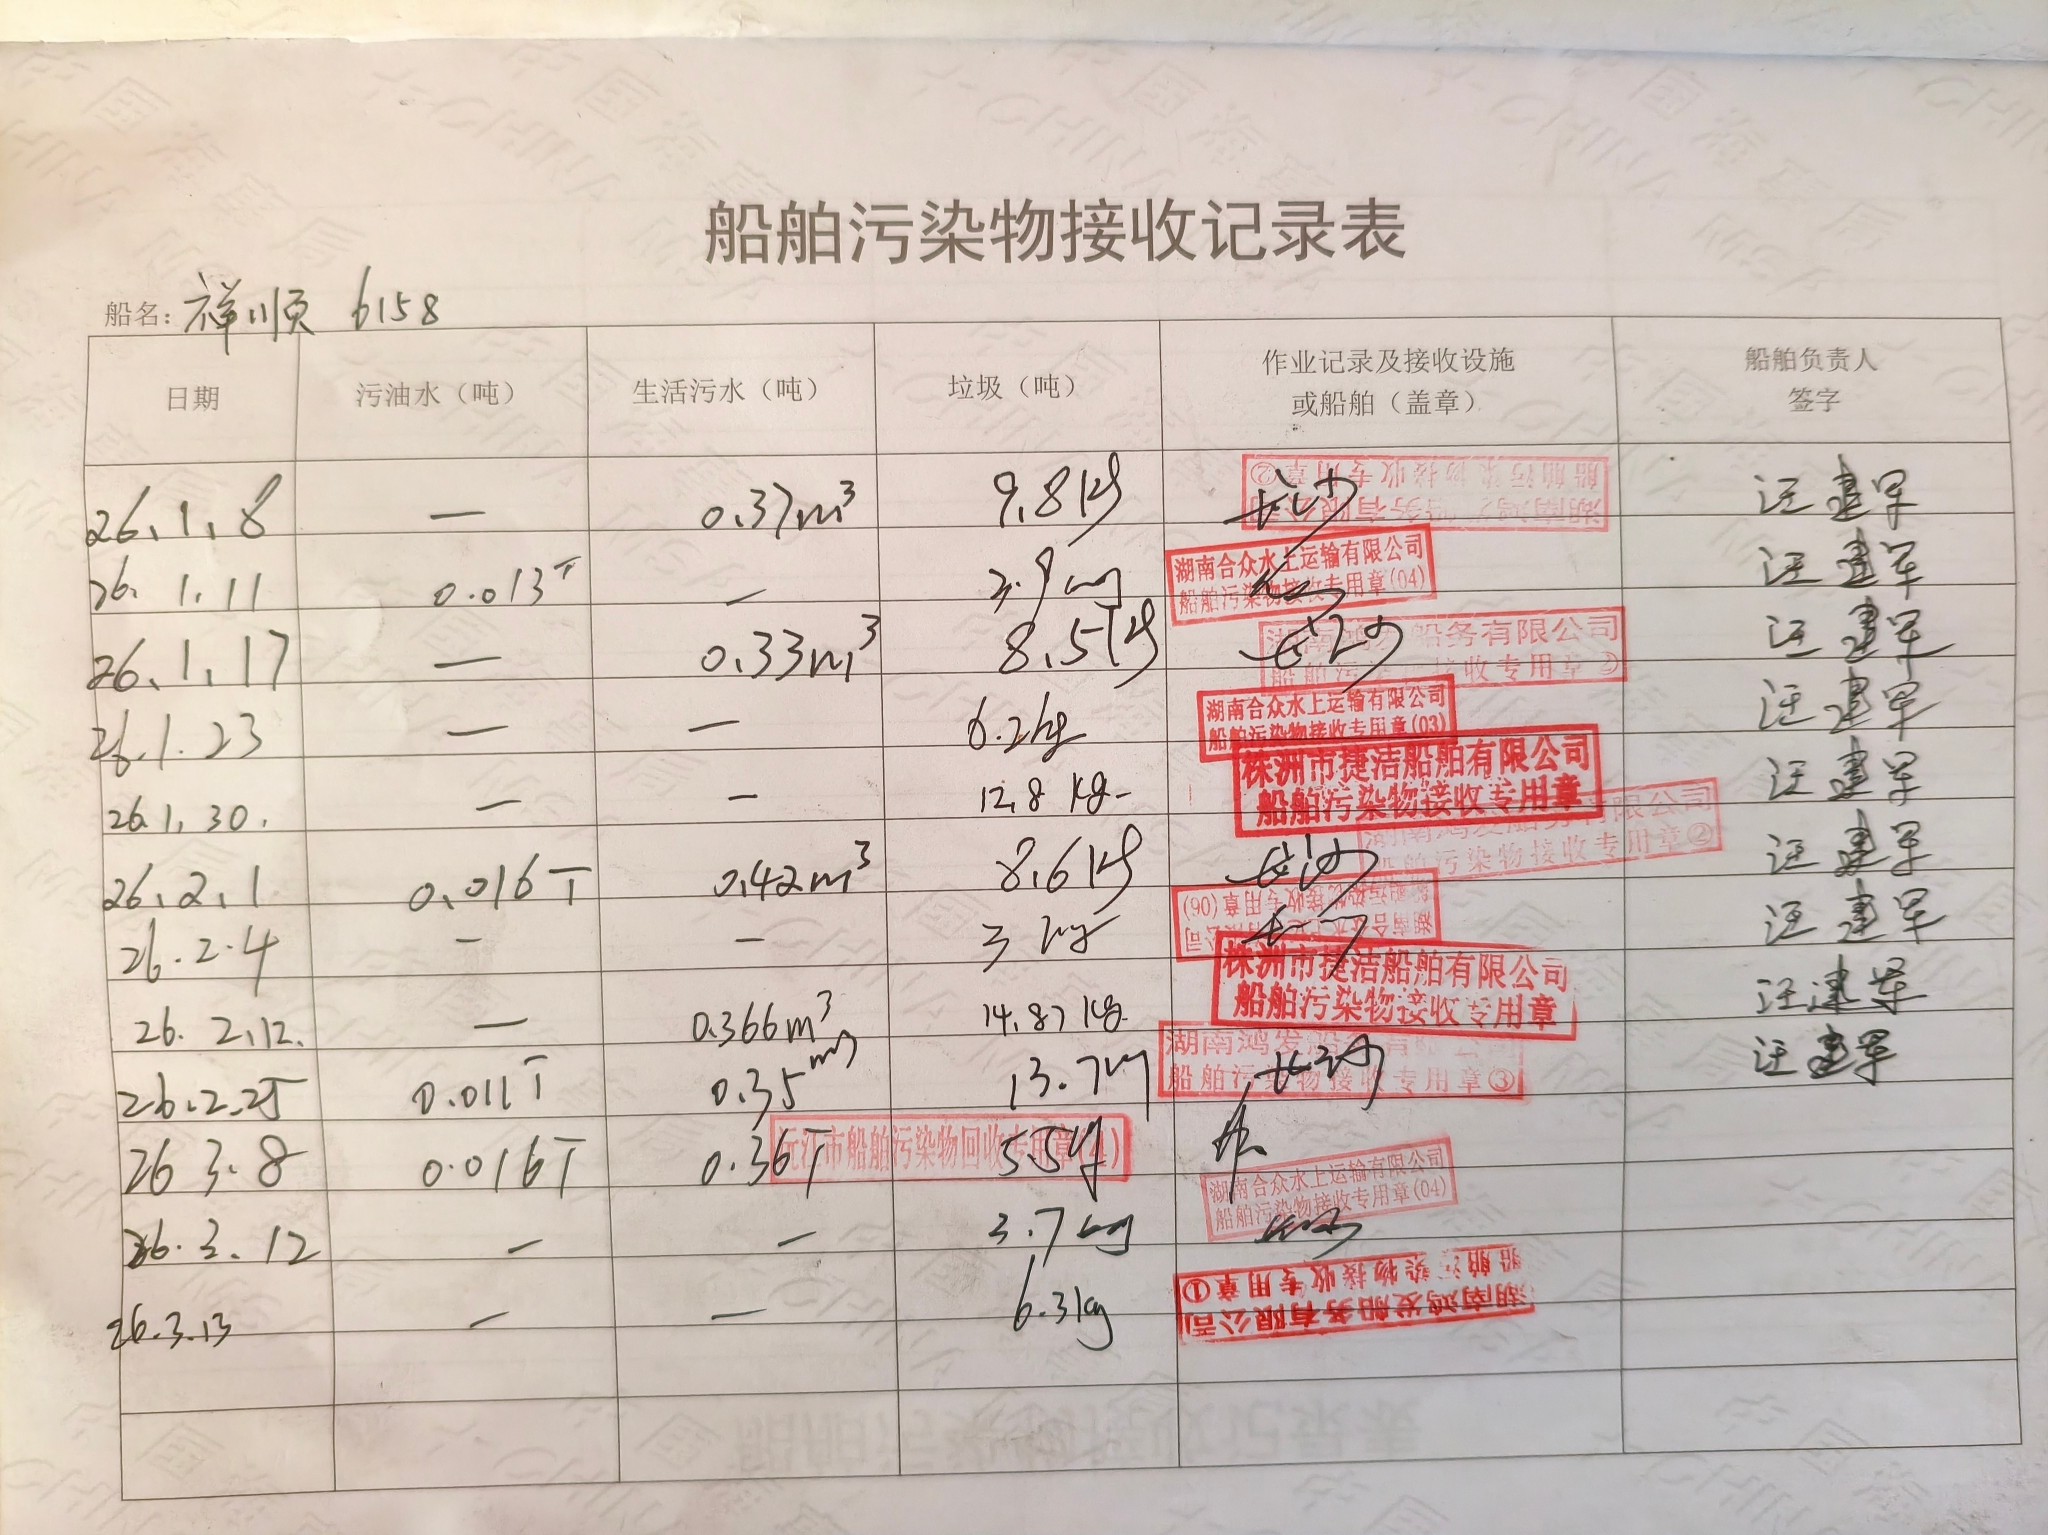 船舶污染物接收记录表
船名: 祥顺 6158
日期 污油水（吨） 生活污水（吨） 垃圾（吨） 作业记录及接收设施或船舶（盖章） 船舶负责人签字
26.1.8 — 0.37m³ 9.8kg 长沙 湖南鸿发船务有限公司 船舶污染物接收专用章② 汪建军
26.1.11 0.013T — kg 湖南合众水上运输有限公司 船舶污染物接收专用章(04) 汪建军
26.1.17 — 0.33m³ 8.5kg 长沙 湖南鸿发船务有限公司 船舶污染物接收专用章 汪建军
26.1.23 — — 6.2kg 湖南合众水上运输有限公司 船舶污染物接收专用章(03) 汪建军
26.1.30. — — 12.8kg- 株洲市捷洁船舶有限公司 船舶污染物接收专用章 汪建军
26.2.1 0.016T 0.42m³ 8.6kg 长沙 湖南鸿发船务有限公司 船舶污染物接收专用章② 汪建军
26.2.4 - — 3kg 湖南合众水上运输有限公司 船舶污染物接收专用章(06) 汪建军
26.2.12. — 0.366m³ 14.87kg 株洲市捷洁船舶有限公司 船舶污染物接收专用章 汪建军
26.2.25 0.011T 0.35m³ 13.7kg 长沙 湖南鸿发船务有限公司 船舶污染物接收专用章③ 汪建军
26 3.8 0.016T 0.36T 5.5kg 沅江市船舶污染物回收专用章(4)
26.3.12 — — 3.7kg 湖南合众水上运输有限公司 船舶污染物接收专用章(04)
26.3.13 — — 6.3kg 湖南鸿发船务有限公司 船舶污染物接收专用章①